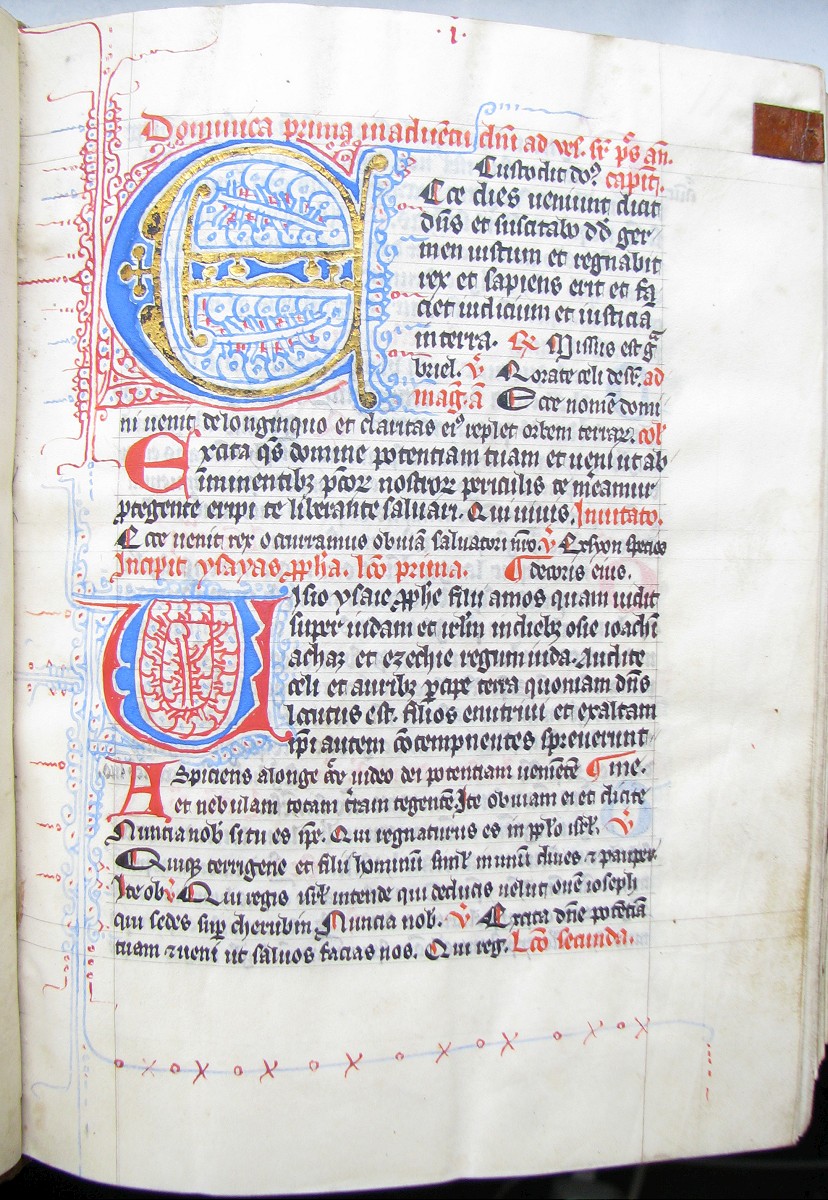 .i.
Dominica prima in aduentu dni ad ves. sr ps an.
Custodit dos. capitl.
Ecce dies ueniunt dicit
dns et suscitabo dd ger
men iustum et regnabit
rex et sapiens erit et fa
ciet iudicium et iusticiā
in terra. Missus est ga
briel. v Rorate celi desr. ad
mag. a Ecce nomē domi
ni uenit de longinquo et claritas eiꝰ replet orbem terraꝝ. col
Excita qs domine potentiam tuam et ueni ut ab
imminentibꝫ pctoꝝ nostroꝝ periculis te mereamur
ꝓtegente eripi te liberante saluari. Qui uiuis. Inuitato.
Ecce uenit rex occurramus obuiā saluatori nro. v Ex syon species
Incipit ysayas ꝓpha. Lco prima. decoris eius.
Uisio ysaie ꝓphe filii amos quam uidit
super iudam et irlm in diebꝫ osie ioathā
achaz et ezechie regum iuda. Audite
celi et auribꝫ ꝑcipe terra quoniam dns
locutus est. filios enutriui et exaltaui
ipi autem cōtempnentes spreuerunt
Aspiciens a longe ecce video dei potentiam uenientē me.
et nebulam totam trām tegentē Ite obuiam ei et dicite
Nuncia nob si tu es ipe. Qui regnaturus es in pplo isrl. v
Quiqꝫ terrigene et filii hominū siml in unū diues ⁊ pauper.
Ite ob v Qui regis isrl intende qui deducis uelut ouē ioseph
qui sedes sup cherubin Nuncia nob. v Excita dne potētiā
tuam ⁊ ueni ut saluos facias nos. Qui reg. Lco secunda.